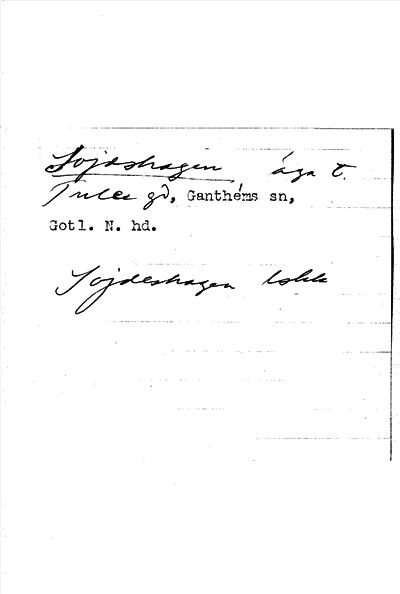 Sojdshagen äga t.
Tules gd, Ganthems sn,
Gotl. N. hd.
Sojdeshagen lskk